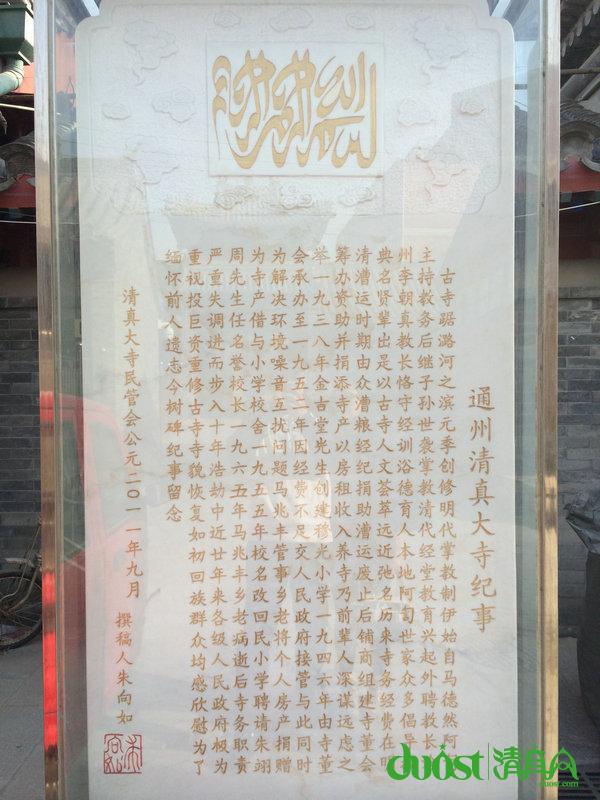 بسم الله الرحمن الرحيم
通州清真大寺纪事
古寺踞潞河之滨元季创修明代掌教制伊始自马德然阿
主持教务后继子孙世袭掌教清代经堂教育兴起外聘教长
州李朝真教长恪守经训浴德育人本地阿訇世家众多倡导
典名贤辈出是以古寺人文荟萃远近弛名历来寺务经费在明
清漕运时期由众漕粮经纪捐助漕运废止后铺商组建寺董会
筹办资助并捐添寺产以房租收入养寺乃前辈人深谋远虑之
举一九三八年金吉堂先生创建穆光小学一九四六年由寺董
会承办至一九五三年因经费不足交人民政府接管与此同时
为解决环境噪音互扰问题马兆丰管事乡老将个人房产捐赠
为寺产借与小学校舍一九五五年校名改回民小学聘请朱翊
周先生任名誉校长一九六五年马兆丰乡老病逝后寺务职责
严重失调进而步入十年浩劫中近廿年来各级人民政府极为
重视投巨资重修古寺寺貌恢复如初回族群众均感欣慰为了
缅怀前人遗志今树碑纪事留念
清真大寺民管会公元二〇一一年九月 撰稿人朱向如
duost 清真